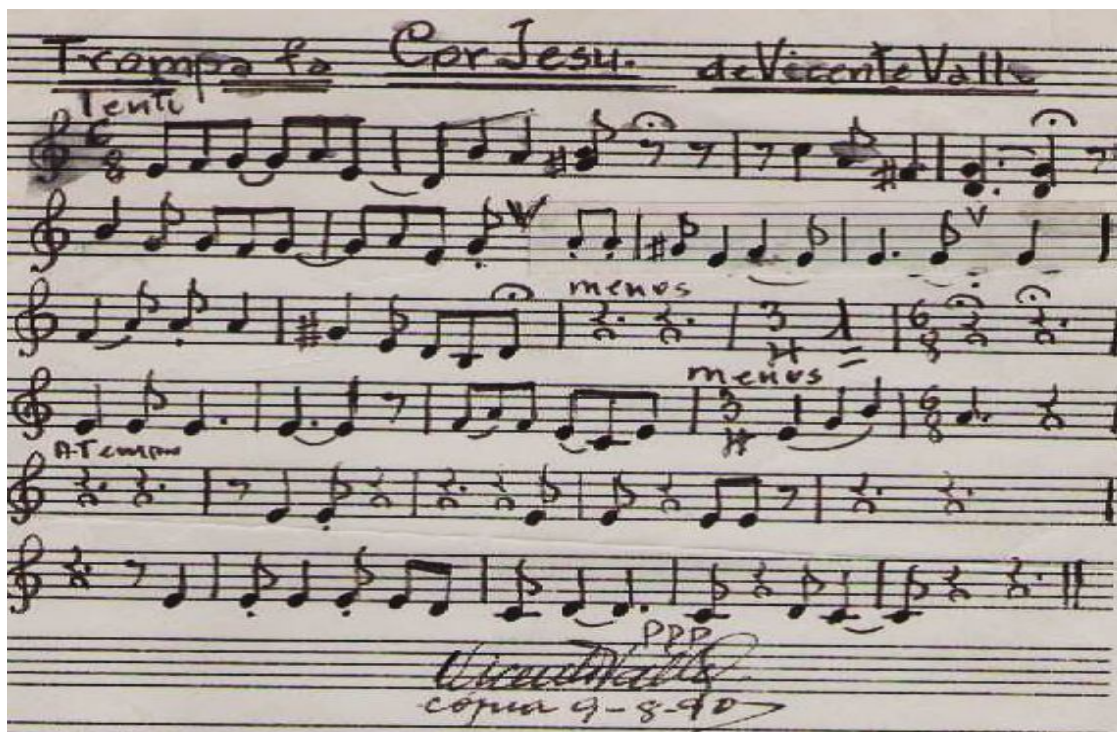 Trompa fa Cor Jesu. de Vicente Valle
Lento
6 8
menos
3 4 6 8
menos
3 4 6 8
A Tempo
PPP
Vicente Valle
copia 9-8-90